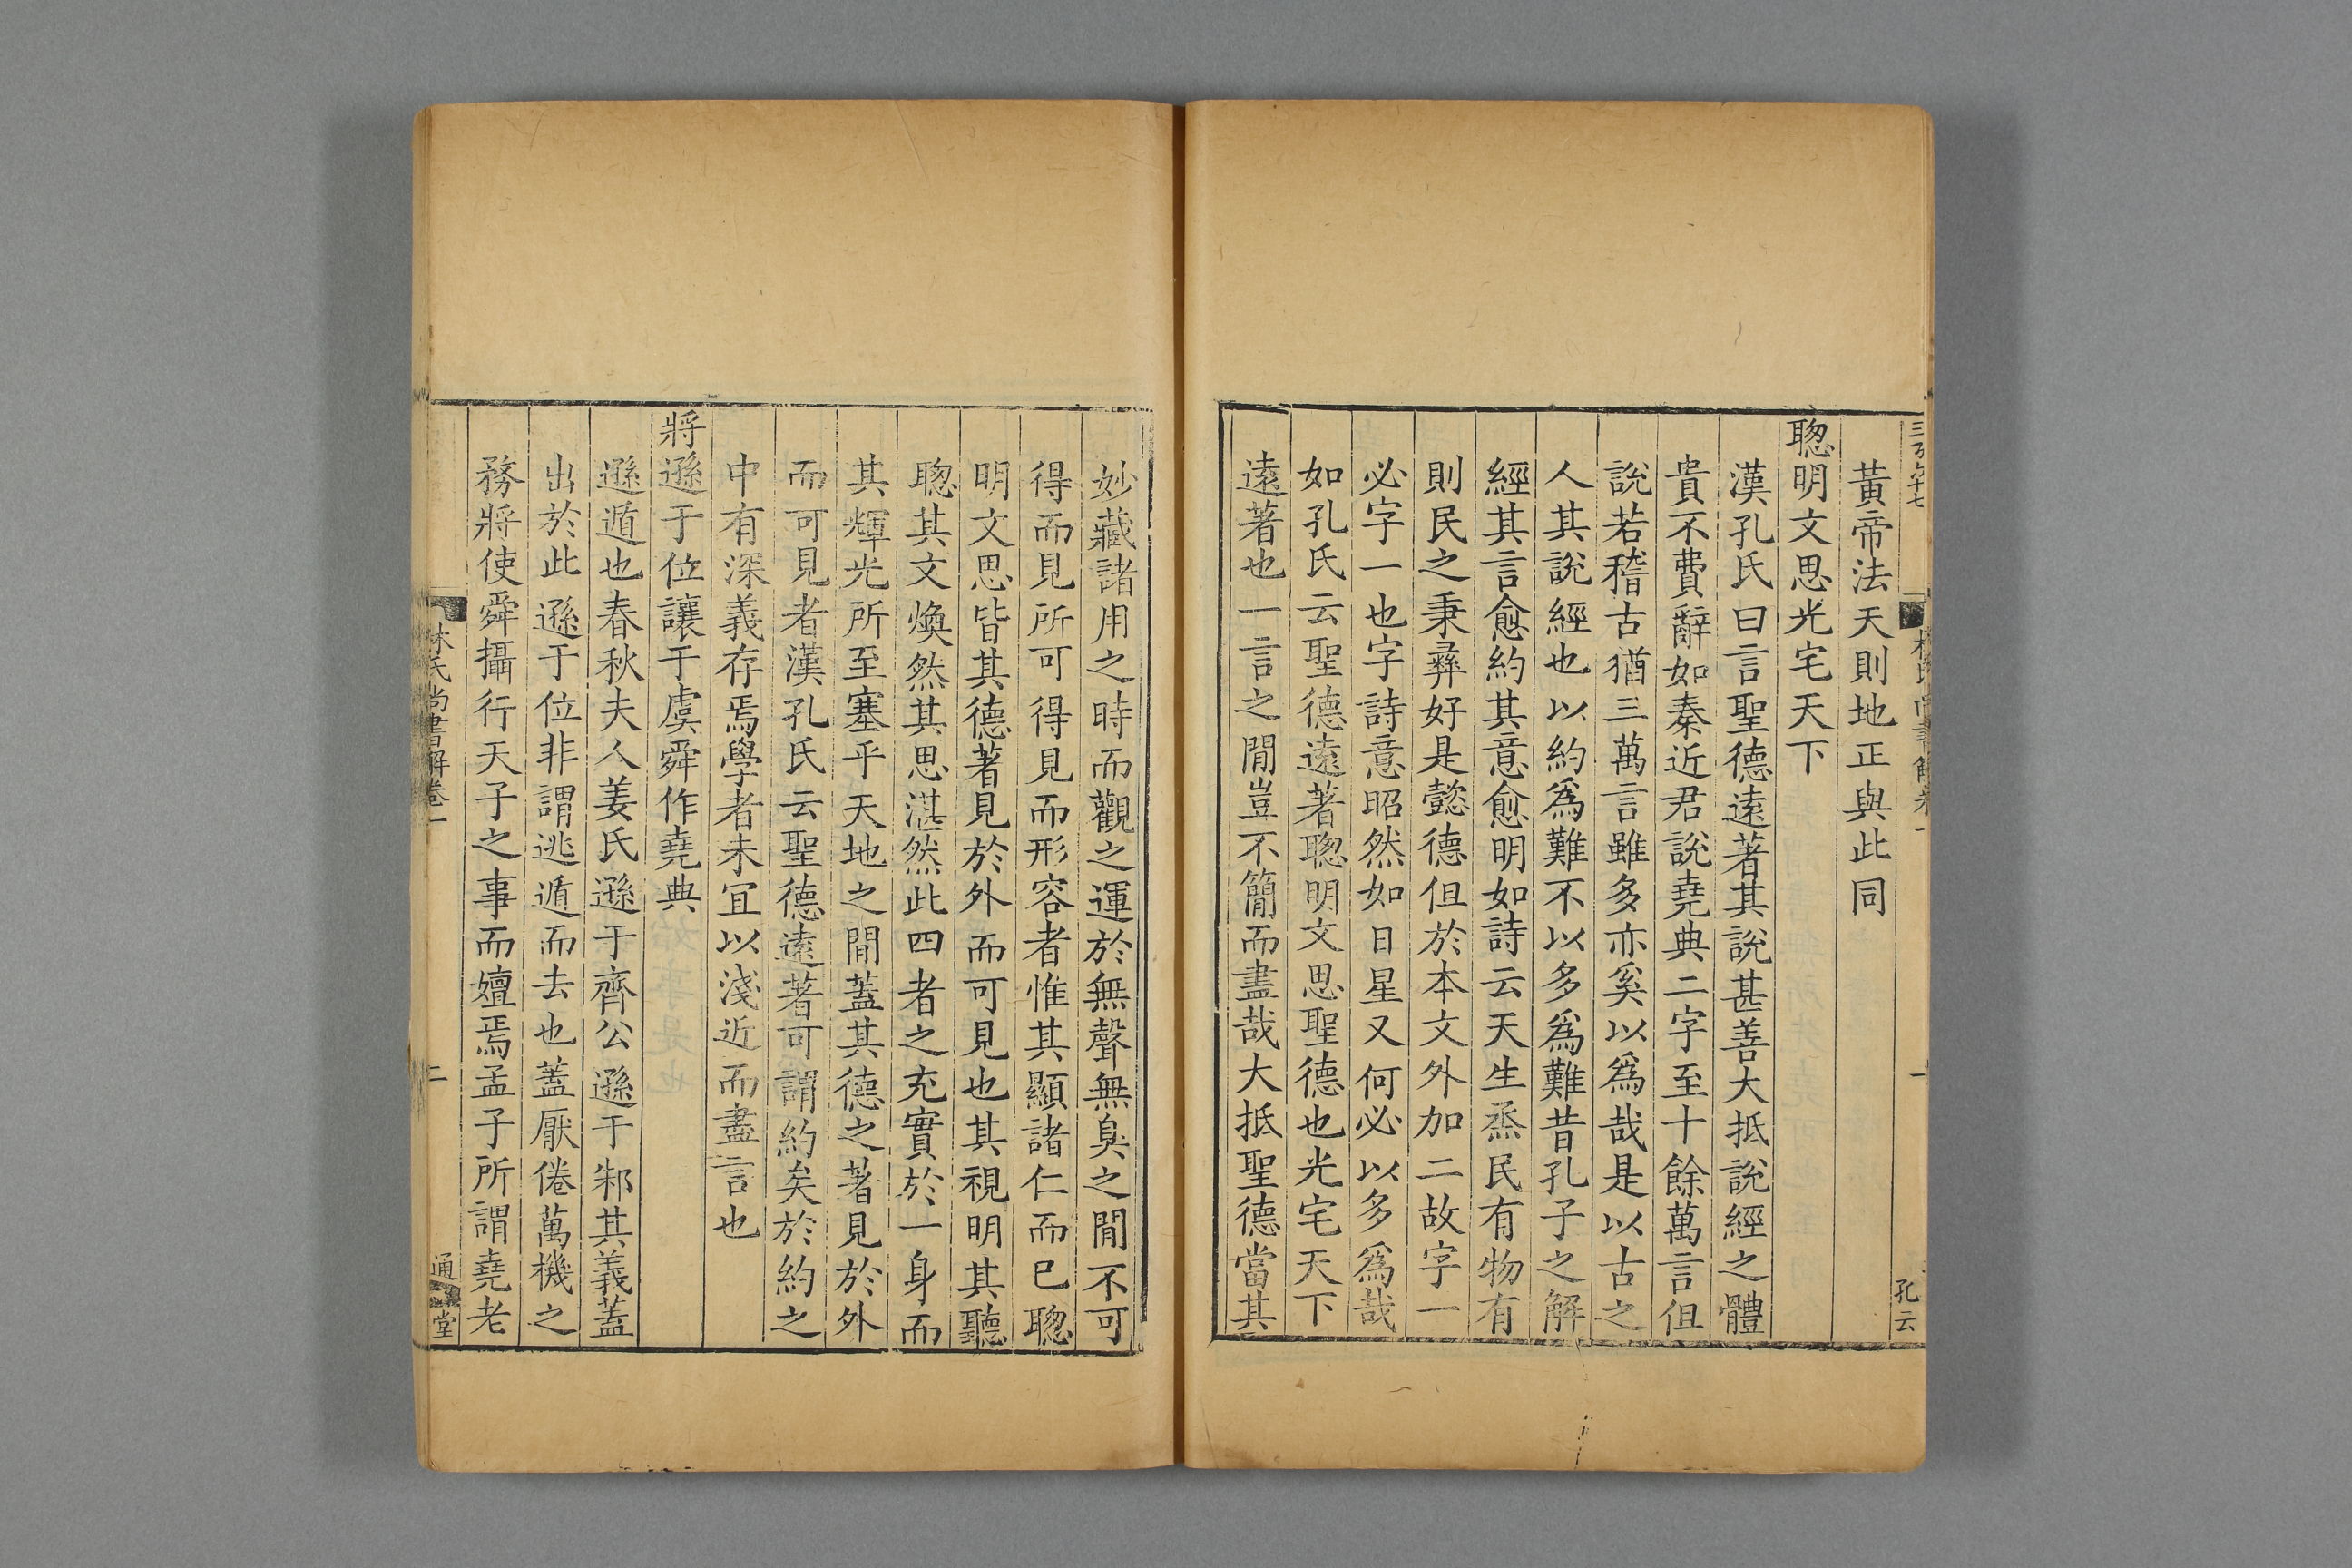 黃帝法天則地正與此同
聰明文思光宅天下
漢孔氏曰言聖德遠著其說甚善大抵說經之體
貴不費辭如秦近君說堯典二字至十餘萬言但
說若稽古猶三萬言雖多亦奚以爲哉是以古之
人其說經也以約爲難不以多爲難昔孔子之解
經其言愈約其意愈明如詩云天生烝民有物有
則民之秉彛好是懿德但於本文外加二故字一
必字一也字詩意昭然如日星又何必以多爲哉
如孔氏云聖德遠著聰明文思聖德也光宅天下
遠著也一言之閒豈不簡而盡哉大抵聖德當其
孔云
妙藏諸用之時而觀之運於無聲無臭之閒不可
得而見所可得見而形容者惟其顯諸仁而已聰
明文思皆其德著見於外而可見也其視明其聽
聰其文煥然其思湛然此四者之充實於一身而
其輝光所至塞乎天地之閒蓋其德之著見於外
而可見者漢孔氏云聖德遠著可謂約矣於約之
中有深義存焉學者未冝以淺近而盡言也
將遜于位讓于虞舜作堯典
遜遁也春秋夫人姜氏遜于齊公遜于邾其義蓋
出於此遜于位非謂逃遁而去也蓋厭倦萬機之
務將使舜攝行天子之事而嬗焉孟子所謂堯老
林氏尚書解卷一
二
通
堂